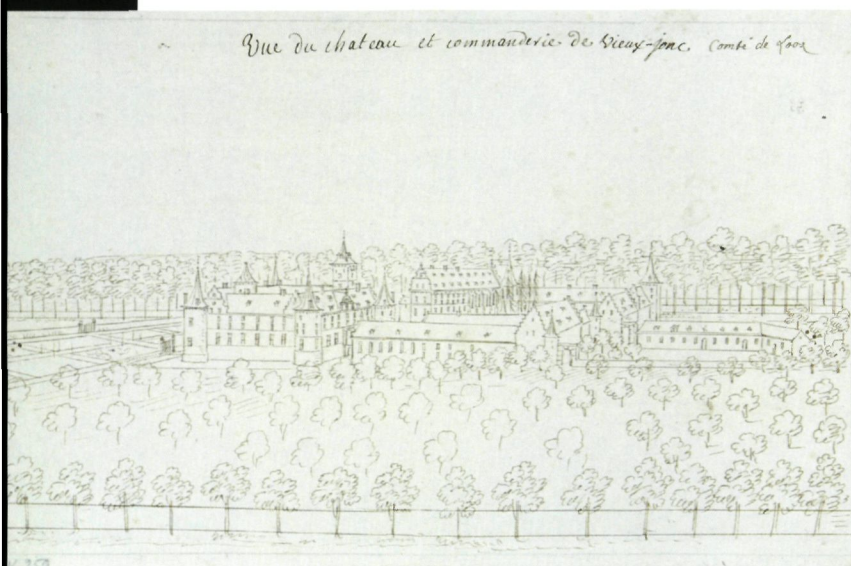 Vue du chateau et commanderie de Vieux-jonc Comté de Looz